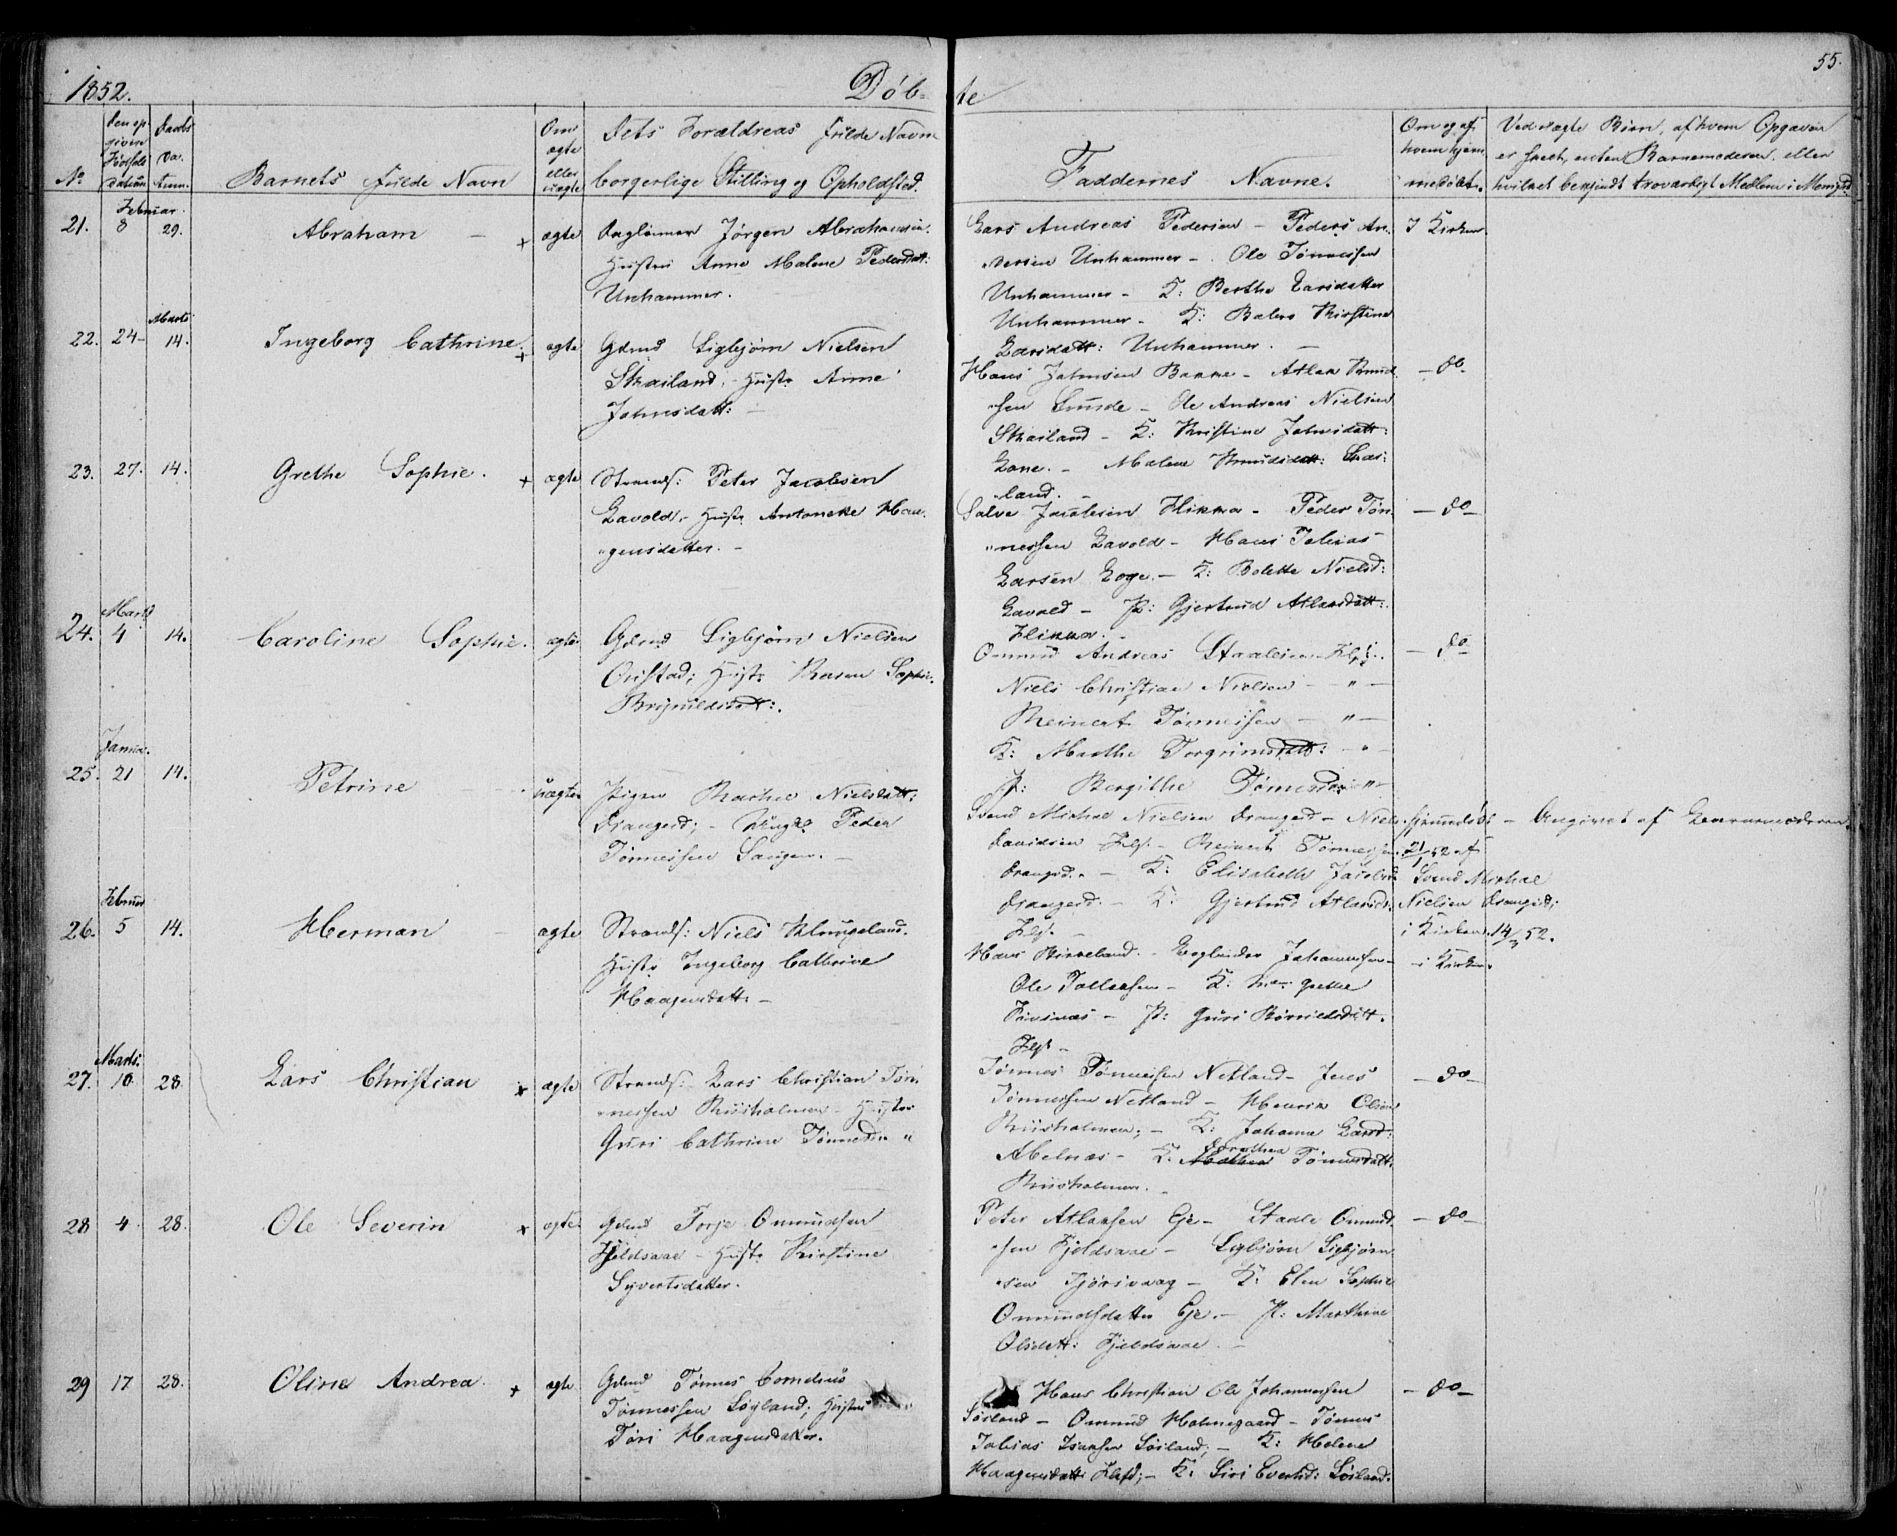 1852.
Døb-
te
55.
No
Den op-
given
Fødsels
Datum
Daabs
Da-
tum.
Barnets fulde Navn
Om
ægte
eller
uægte
Dets Forældres fulde Navn
borgerlige Stilling og Opholdsted.
Faddernes Navne.
Om og af
hvem hjem-
medøbt.
Ved uægte Børn, af hvem Opgaven
er skeet, enten Barnemoderen, eller
hvilket bekjendt troværdigt Medlem i Menighd.
Februar.
21. 8 29. Abraham + ægte
Jørgen Abrahamsen.
Hustru Anne Malene Pedersdatt:
Unhammer.
Lars Andreas Pedersen - Peder An-
dersen Unhammer - Ole Tønnessen
Unhammer - K: Berthe Larsdatter
Unhammer - K: Kirstine
Larsdatt: Unhammer. -
I Kirken.
Marts
22. 24 - 14. Ingeborg Cathrine. + ægte
Gdmd Sigbjørn Nielsen
Skailand, - Hustr Anne
Johnsdatt: -
Hans Johnsen - Atlak Knud-
sen - Ole Andreas Nielsen
Skailand - K: Kirstine Johnsdatt:
- Malene Knudsdatt: Skai-
land. -
- do -
23. 27. 14. Grethe Sophie. + ægte
Strands: Peter Jacobsen
Lavold, - Hustr Antonette Haa-
gensdatter. -
Salve Jacobsen Flikka - Peder Tøn-
nessen Lavold - Hans Tobias
Larsen Loge. - K: Bolette Nielsd:
Lavold - P: Gjertrud Atlaksdatt:
Flikka. -
- do -
Marts
24. 4 14. Caroline Sophie. ægte
Gdmd Sigbjørn Nielsen
; Hustr Karen Sophie
Omund Andreas Staalesen
Niels Christian Nielsen - " -
Reinert Tønnessen - " -
K: Marthe Torgrimsdatt: - " -
P: Bergithe Tønnesd: " -
- do -
Januar.
25. 21 14. Petrine uægte
Pigen Nielsdatt:
Drangeid; - Ungk. Peder
Tønnessen
Svend Michal Nielsen Drangeid - Niels
Davidsen - Reinert Tønnessen
Drangd. - K: Elisabeth Jacobsd:
Drangeid. - K: Gjertrud Atlaksd:
hjemmedøbt
21/1 52 af
Svend Michal
Nielsen Drangeid;
i Kirken 14/3 52.
- Angivet af Barnemoderen.
Februar
26. 5 14. Herman - ægte
Strands: Niels Klungeland.
Hustr Ingeborg Cathrine
Haagensdatt -
Hans Kirkeland. - Johannessen -
Ole Tollaksen - K:
- P: Guri
- i Kirken.
Marts.
27. 10 28 Lars Christian + ægte
Strands: Lars Christian Tøn-
nessen Riisholmen - Hustru
Guri Cathrine Tønnesdr "
Tønnes Tønnessen Netland - Jens
Tønnessen Netland - Henrik Olsen
Riisholmen; - K: Johanne Larsd:
Abelnæs - K: Dorothea Tønnesdatt:
Riisholmen. -
- do -
28 4. 28. Ole Severin + ægte
Gdmd Terje Omundsen
Fjeldsaae - Hustr Kirstine
Syvertsdatter.
Peter Atlaksen Eje - Staale Omund-
sen Fjeldsaae - Sigbjørn Sigbjørn-
sen Tjørsvaag - K: Elen Sophie
Omundsdatter Eje. - P: Marthine
Olsdatt: Fjeldsaae. -
- do -
29 17 28. Oline Andrea. + ægte
Gdmd Tønnes Cornelius
Tønnessen Søyland; Hustru
Tori Haagensdatter.
Hans Christian Ole Johannessen
Søiland - Omund Holmegaard - Tønnes
Tobias Isaksen Søiland; - K: Helene
Haagensdatt: - K: Siri Evertsd: Søiland.
- do -